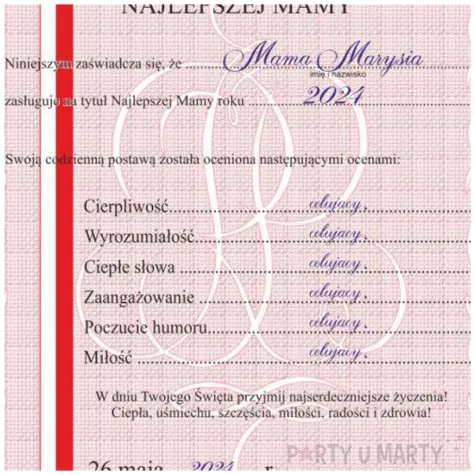 NAJLEPSZEJ MAMY
Niniejszym zaświadcza się, że ..... Mama Marysia .....
imię i nazwisko
zasługuje na tytuł Najlepszej Mamy roku ..... 2024 .....
Swoją codzienną postawą została oceniona następującymi ocenami:
Cierpliwość..... celujący.
Wyrozumiałość..... celujący.
Ciepłe słowa ..... celujący.
Zaangażowanie ..... celujący.
Poczucie humoru..... celujący.
Miłość ..... celujący.
W dniu Twojego Święta przyjmij najserdeczniejsze życzenia!
Ciepła, uśmiechu, szczęścia, miłości, radości i zdrowia!
PARTY U MARTY
26 maja 2024 r